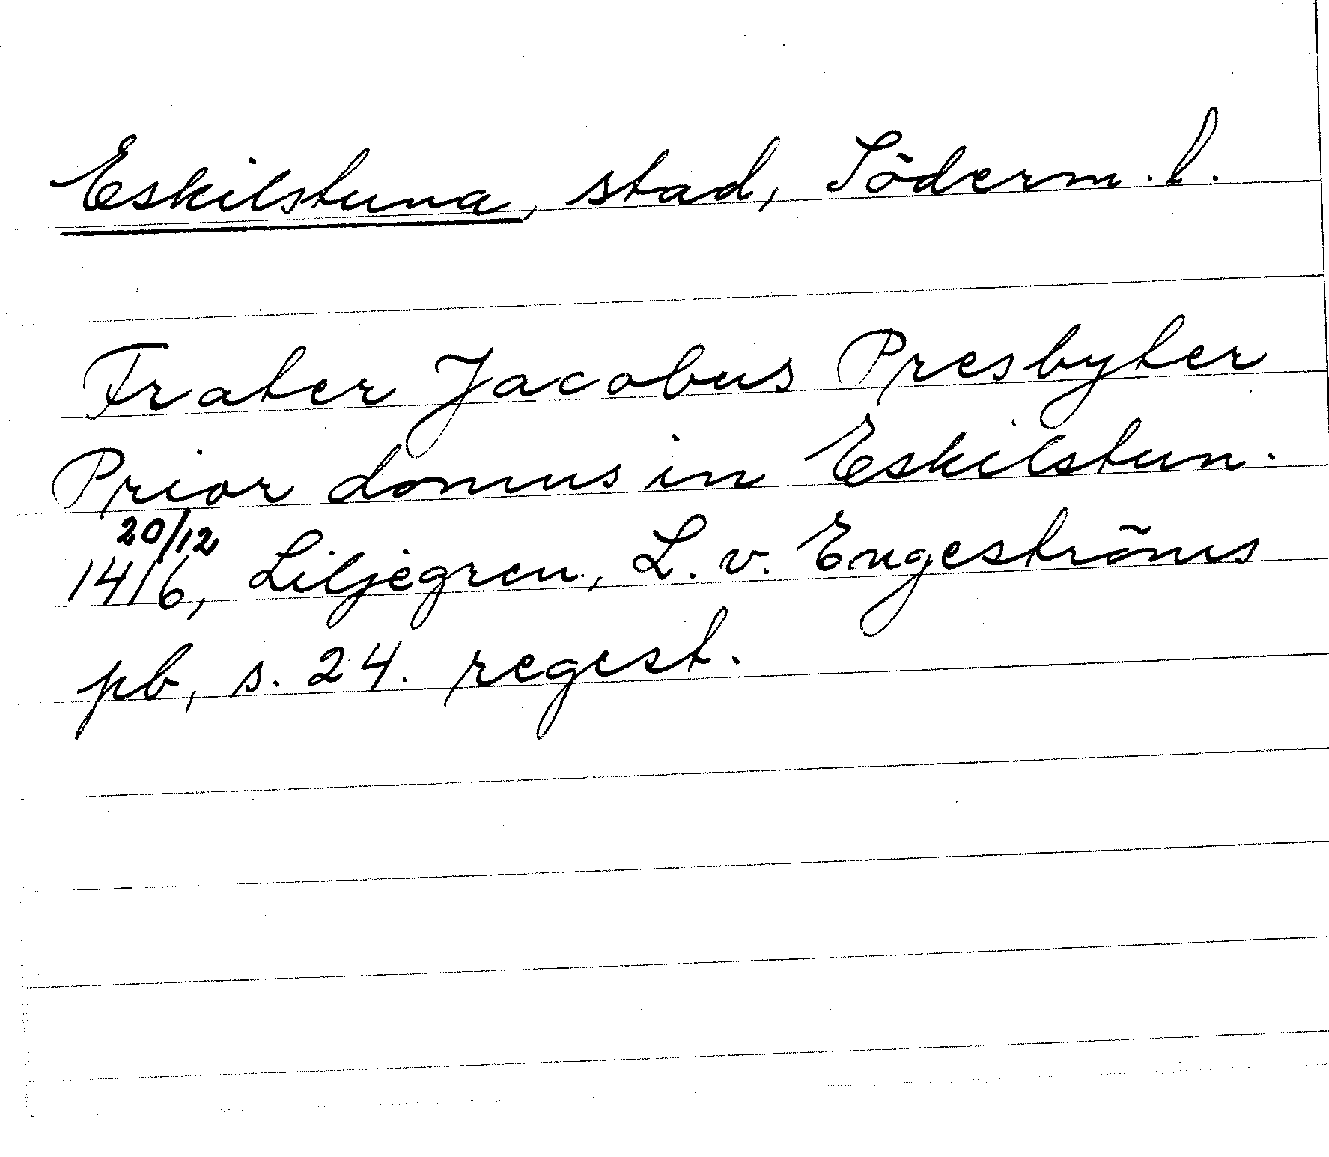 Eskilstuna, stad, Söderm. l.
Frater Jacobus Presbyter
Prior domus in Eskilstun.
20/12
1416, Liljegren, L. v. Engeströms
pb, s. 24. regest.